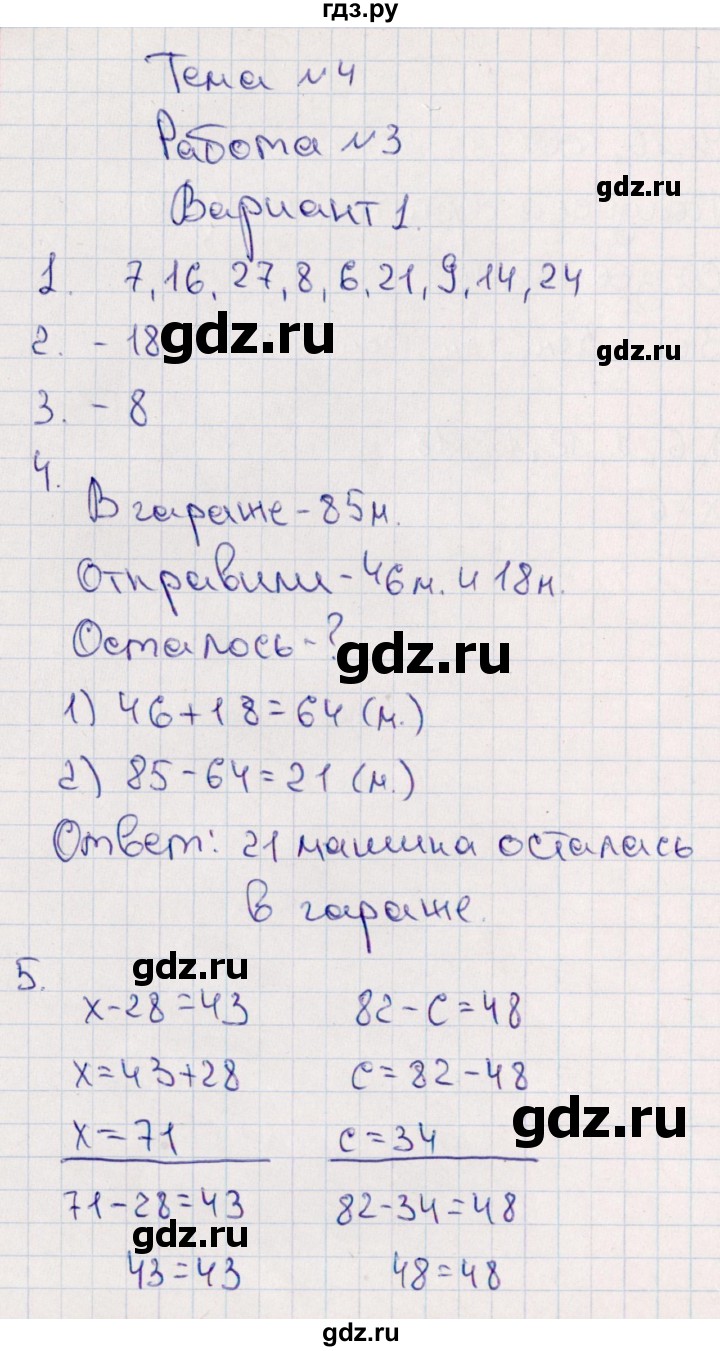 гдз.ру
Тема №4
Работа №3
gdz.ru
Вариант 1.
1. 7, 16, 27, 8, 6, 21, 9, 14, 24
2. - 18
gdz.ru
gdz.ru
3. - 8
4.
В гараже - 85 м.
Отправили - 46 м. и 18 м.
Осталось - ?
gdz.ru
1) 46+18=64 (м.)
2) 85-64=21 (м.)
Ответ: 21 машина осталась
в гараже.
gdz.ru
5.
х-28=43 82-с=48
х=43+28 с=82-48
gdz.ru
х=71 с=34
71-28=43 82-34=48
gdz.ru
43=43 48=48
gdz.ru